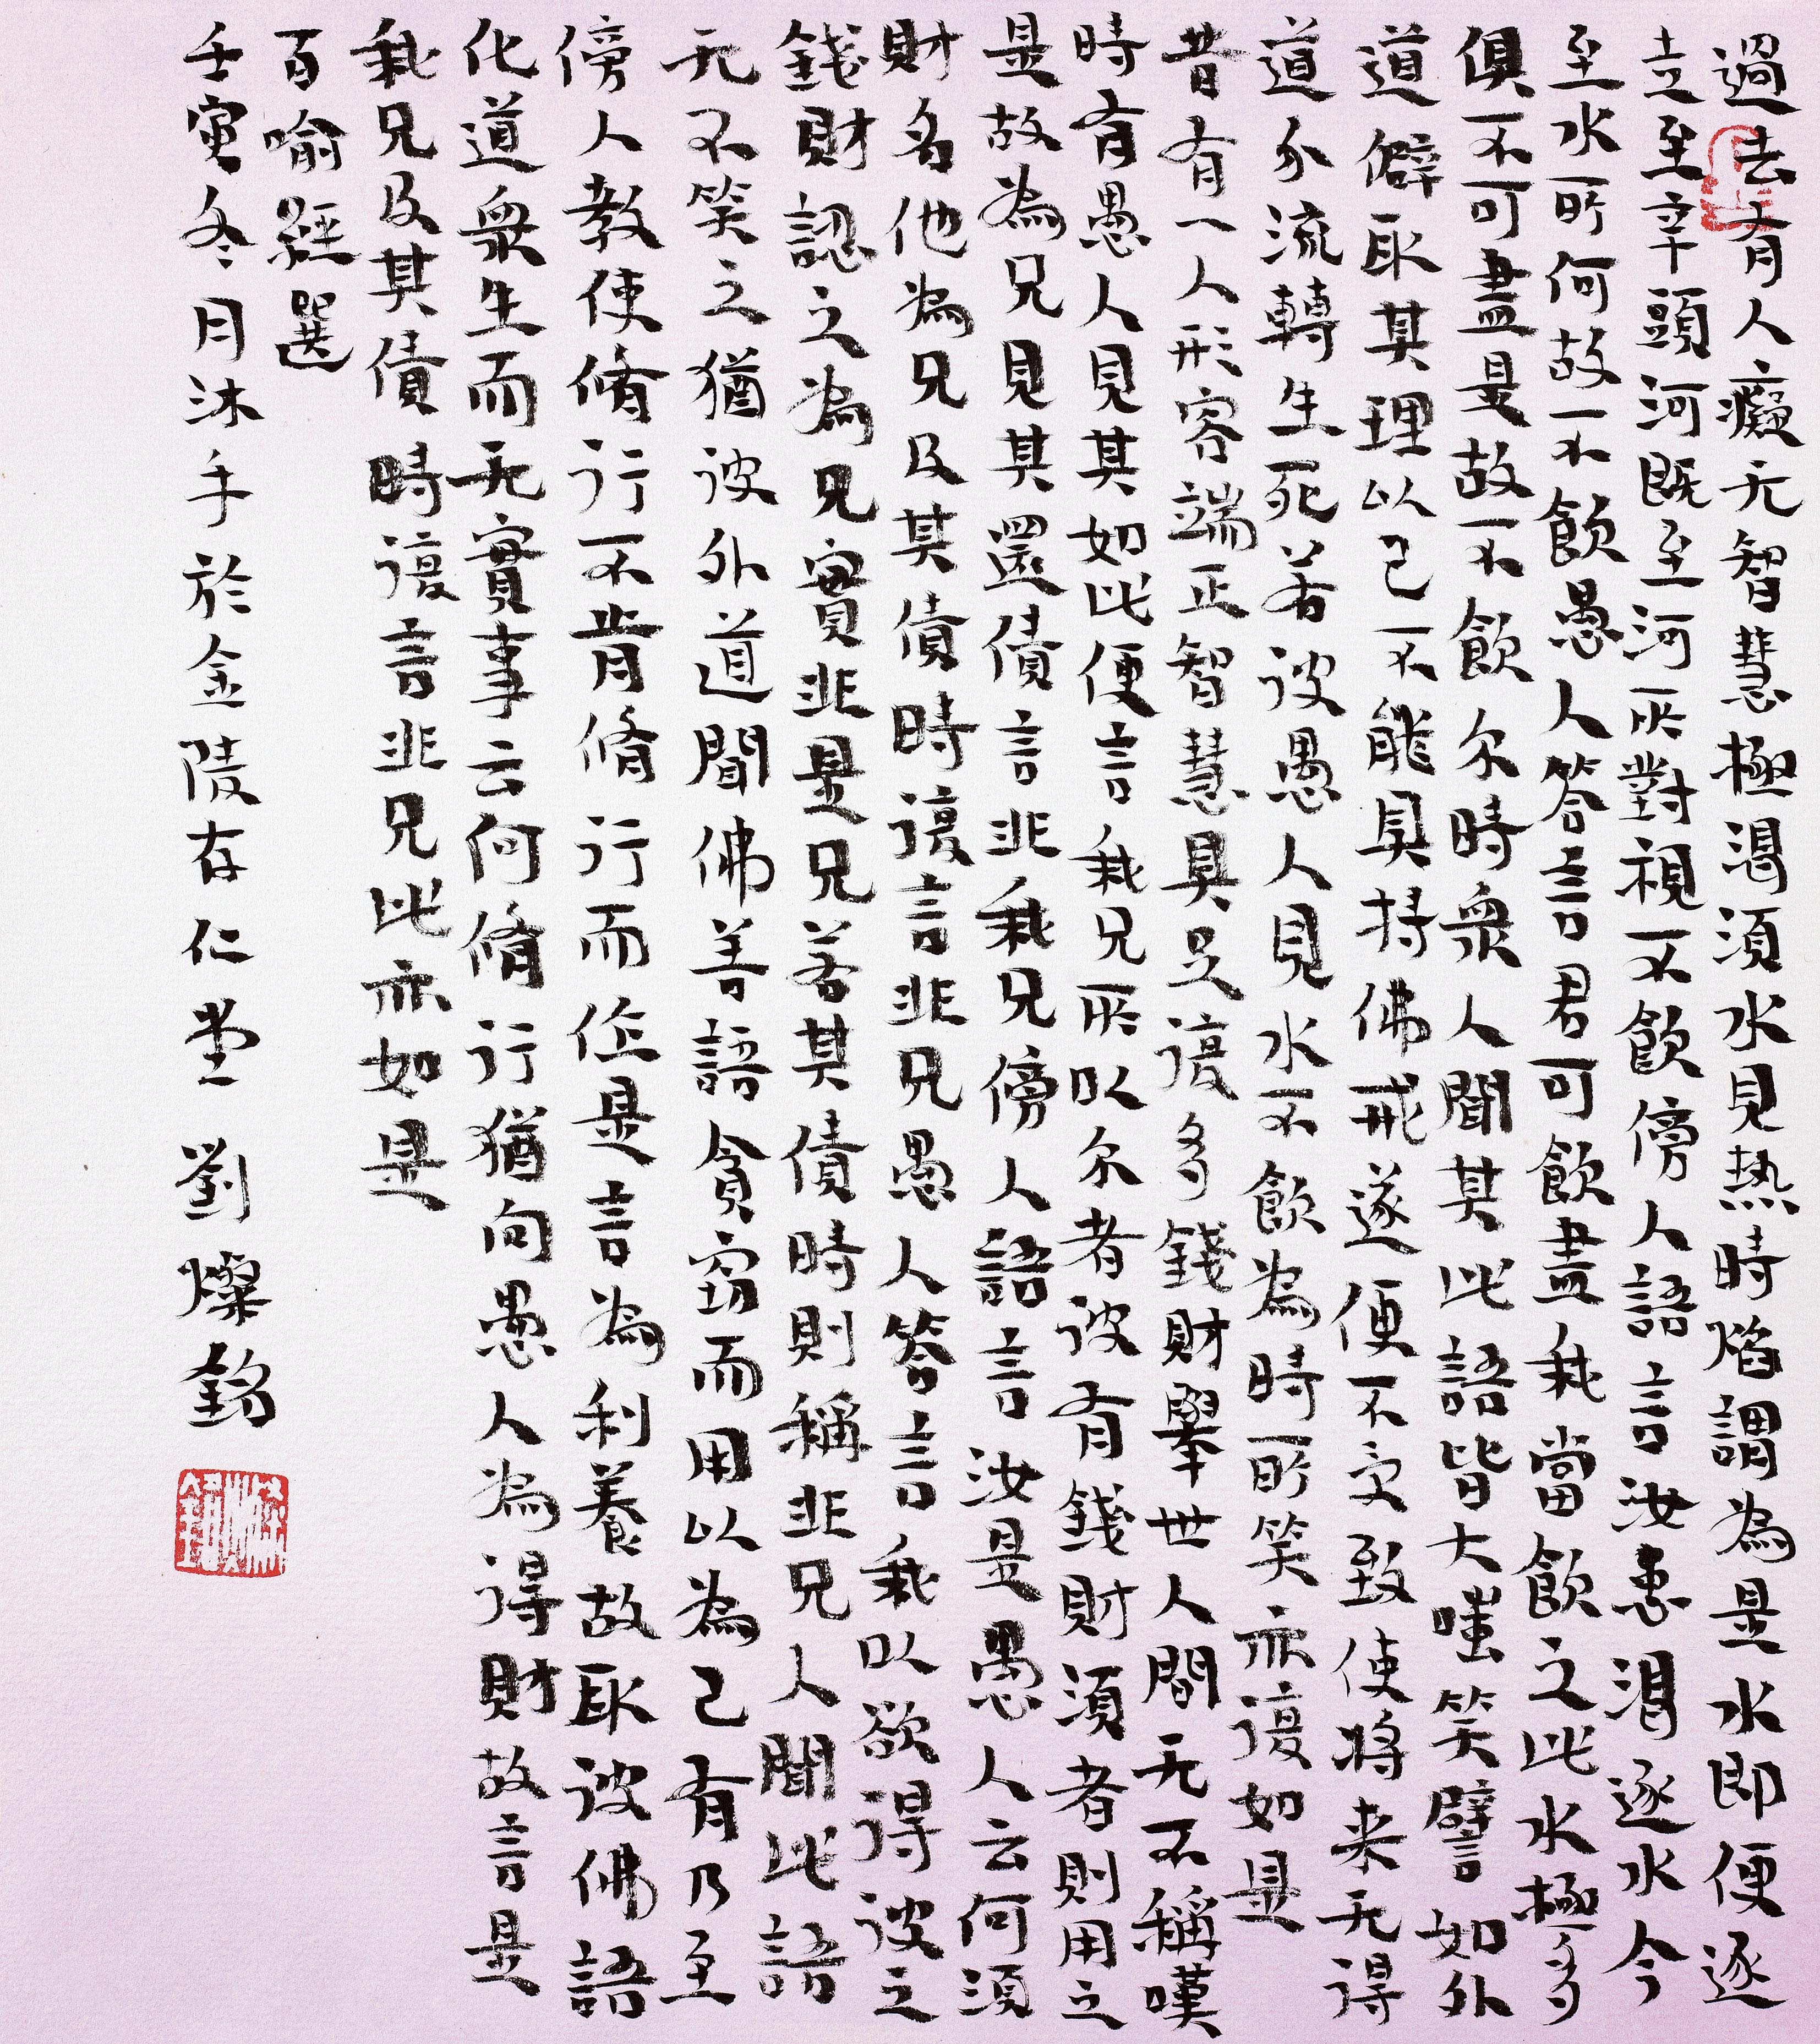 過去有人癡无智慧極渴須水見热時焰謂為是水即便逐
走至辛頭河既至河所對視不飲傍人語言汝患渴逐水今
至水所何故不飲愚人答言君可飲盡我當飲之此水極多
俱不可盡是故不飲尔時衆人聞其此語皆大嗤笑譬如外
道僻取其理以己不能具持佛戒遂便不受致使将来无得
道分流轉生死若彼愚人見水不飲為時所笑亦復如是
昔有一人形容端正智慧具足復多錢財舉世人間无不稱嘆
時有愚人見其如此便言我兄所以尔者彼有錢財須者則用之
是故為兄見其還債言非我兄傍人語言汝是愚人云何須
財名他為兄及其債時復言非兄愚人答言我以欲得彼之
錢財認之為兄實非是兄若其債時則稱非兄人聞此語
无不笑之猶彼外道聞佛善語貪竊而用以為己有乃至
傍人教使脩行不肯脩行而作是言為利養故取彼佛語
化道衆生而无實事云何脩行猶向愚人為得財故言是
我兄及其債時復言非兄此亦如是
百喻經選
壬寅冬月沐手於金陵存仁堂 劉燦銘